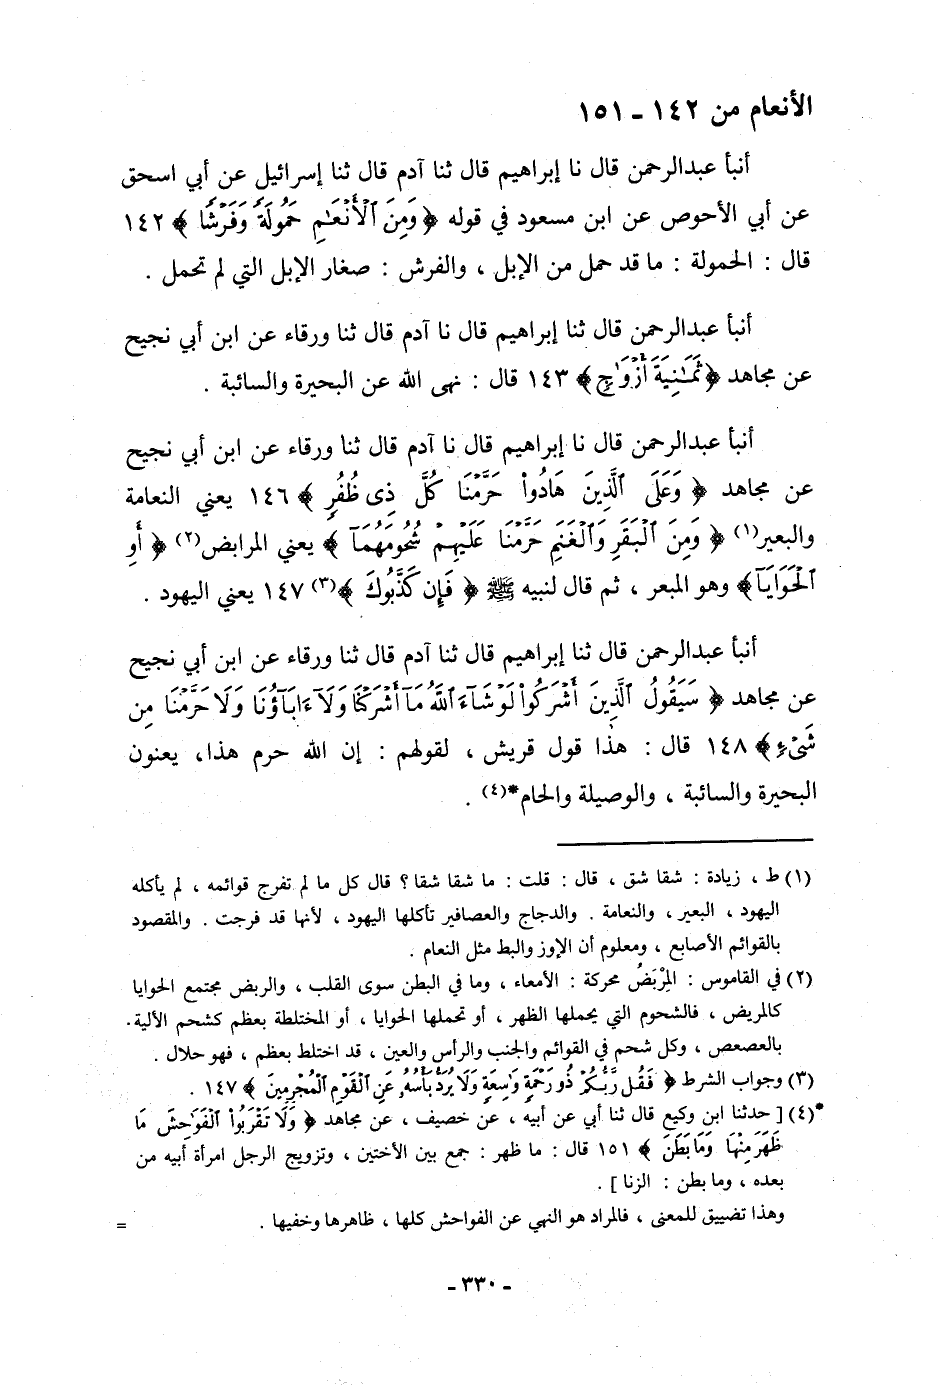 الأنعام من ١٤٢ ـ ١٥١
أنبأ عبدالرحمن قال نا إبراهيم قال ثنا آدم قال ثنا إسرائيل عن أبي اسحق
عن أبي الأحوص عن ابن مسعود في قوله ﴿ وَمِنَ ٱلْأَنْعَٰمِ حَمُولَةً وَفَرْشًا ﴾ ١٤٢
قال : الحمولة : ما قد حمل من الإبل ، والفرش : صغار الإبل التي لم تحمل .
أنبأ عبدالرحمن قال ثنا إبراهيم قال نا آدم قال ثنا ورقاء عن ابن أبي نجيح
عن مجاهد ﴿ ثَمَٰنِيَةَ أَزْوَٰجٍ ﴾ ١٤٣ قال : نهى الله عن البحيرة والسائبة .
أنبأ عبدالرحمن قال نا إبراهيم قال نا آدم قال ثنا ورقاء عن ابن أبي نجيح
عن مجاهد ﴿ وَعَلَى ٱلَّذِينَ هَادُوا۟ حَرَّمْنَا كُلَّ ذِى ظُفُرٍ ﴾ ١٤٦ يعني النعامة
والبعير(١) ﴿ وَمِنَ ٱلْبَقَرِ وَٱلْغَنَمِ حَرَّمْنَا عَلَيْهِمْ شُحُومَهُمَآ ﴾ يعني المرابض(٢) ﴿ أَوِ
ٱلْحَوَايَآ ﴾ وهو المبعر ، ثم قال لنبيه ﷺ ﴿ فَإِن كَذَّبُوكَ ﴾(٣) ١٤٧ يعني اليهود .
أنبأ عبدالرحمن قال ثنا إبراهيم قال ثنا آدم قال ثنا ورقاء عن ابن أبي نجيح
عن مجاهد ﴿ سَيَقُولُ ٱلَّذِينَ أَشْرَكُوا۟ لَوْ شَآءَ ٱللَّهُ مَآ أَشْرَكْنَا وَلَآ ءَابَآؤُنَا وَلَا حَرَّمْنَا مِن
شَىْءٍ ﴾ ١٤٨ قال : هذا قول قريش ، لقولهم : إن الله حرم هذا، يعنون
البحيرة والسائبة ، والوصيلة والحام*(٤) .
(١) ط ، زيادة : شقا شق ، قال : قلت : ما شقا شقا ؟ قال كل ما لم تفرج قوائمه ، لم يأكله
اليهود ، البعير ، والنعامة . والدجاج والعصافير تأكلها اليهود ، لأنها قد فرجت . والمقصود
بالقوائم الأصابع ، ومعلوم أن الإوز والبط مثل النعام .
(٢) في القاموس : المِرْبَضُ محركة : الأمعاء ، وما في البطن سوى القلب ، والربض مجتمع الحوايا
كالمربض ، فالشحوم التي يحملها الظهر ، أو تحملها الحوايا ، أو المختلطة بعظم كشحم الألية.
بالعصعص ، وكل شحم في القوائم والجنب والرأس والعين ، قد اختلط بعظم ، فهو حلال .
(٣) وجواب الشرط ﴿ فَقُل رَّبُّكُمْ ذُو رَحْمَةٍ وَٰسِعَةٍ وَلَا يُرَدُّ بَأْسُهُۥ عَنِ ٱلْقَوْمِ ٱلْمُجْرِمِينَ ﴾ ١٤٧ .
*(٤) [ حدثنا ابن وكيع قال ثنا أبي عن أبيه ، عن خصيف ، عن مجاهد ﴿ وَلَا تَقْرَبُوا۟ ٱلْفَوَٰحِشَ مَا
ظَهَرَ مِنْهَا وَمَا بَطَنَ ﴾ ١٥١ قال : ما ظهر : جمع بين الأختين ، وتزويج الرجل امرأة أبيه من
بعده ، وما بطن : الزنا ] .
وهذا تضييق للمعنى ، فالمراد هو النهي عن الفواحش كلها ، ظاهرها وخفيها . =
ـ ٣٣٠ ـ